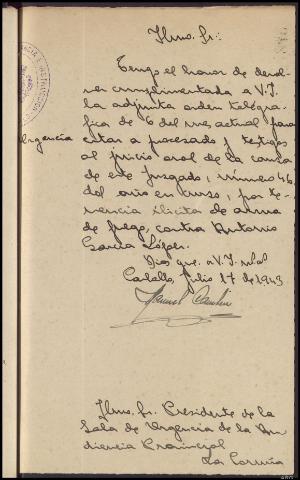 Ilmo. Sr:
Tengo el honor de devol-
ver cumplimentada a V.I.
la adjunta orden telegrá-
fica de 6 del mes actual para
citar a procesado y testigos
al juicio oral de la causa
de este juzgado, número 46
del año en curso, por te-
nencia ilícita de arma
de fuego, contra Antonio
García López.
Dios gue. a V.I. m. as
Carballo, Julio 17 de 1943
Manuel
Ilmo. Sr. Presidente de la
Sala de Urgencia de la Au-
diencia Provincial
La Coruña
urgencia